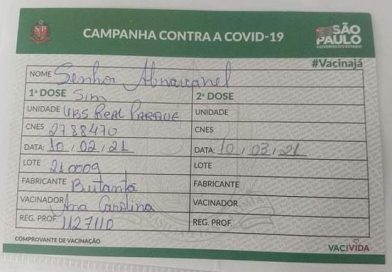 CAMPANHA CONTRA A COVID-19
SÃO PAULO
GOVERNO DO ESTADO
#Vacinajá
NOME Senhor Abravanel
1ª DOSE Sim
2ª DOSE
UNIDADE UBS REAL PARQUE
UNIDADE
CNES 2788470
CNES
DATA: 10, 02, 21
DATA: 10, 03, 21
LOTE 210009
LOTE
FABRICANTE Butantã
FABRICANTE
VACINADOR Ana Carolina
VACINADOR
REG. PROF. 1127110
REG. PROF.
COMPROVANTE DE VACINAÇÃO
VACIVIDA